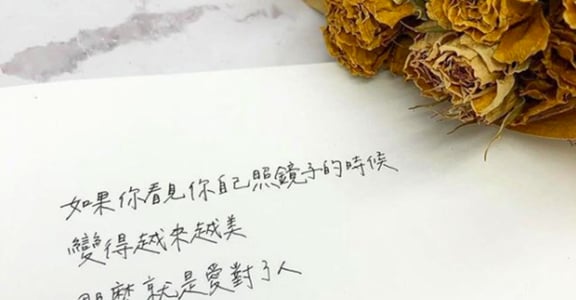 如果你看見你自己照鏡子的時候
變得越來越美
那麼就是愛對了人